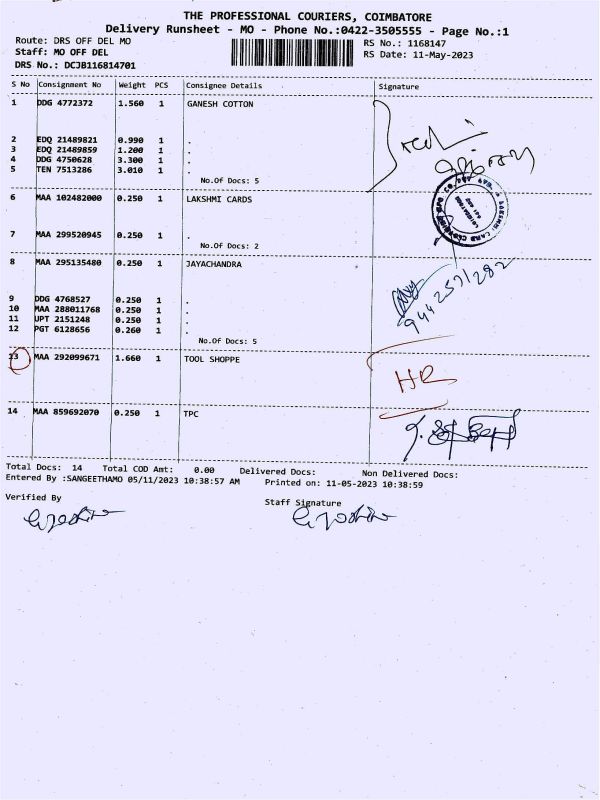 THE PROFESSIONAL COURIERS, COIMBATORE
Delivery Runsheet - MO - Phone No.:0422-3505555 - Page No.:1
Route: DRS OFF DEL MO RS No.: 1168147
Staff: MO OFF DEL RS Date: 11-May-2023
DRS No.: DCJB116814701
S No Consignment No Weight PCS Consignee Details Signature
1 DDG 4772372 1.560 1 GANESH COTTON
2 EDQ 21489821 0.990 1 .
3 EDQ 21489859 1.200 1 .
4 DDG 4750628 3.300 1 .
5 TEN 7513286 3.010 1 .
No.Of Docs: 5
6 MAA 102482000 0.250 1 LAKSHMI CARDS
7 MAA 299520945 0.250 1 .
No.Of Docs: 2
8 MAA 295135480 0.250 1 JAYACHANDRA
9 DDG 4768527 0.250 1 .
10 MAA 288011768 0.250 1 .
11 UPT 2151248 0.250 1 .
12 PGT 6128656 0.260 1 .
No.Of Docs: 5
9442571282
13 MAA 292099671 1.660 1 TOOL SHOPPE
HR
14 MAA 859692070 0.250 1 TPC
Total Docs: 14 Total COD Amt: 0.00 Delivered Docs: Non Delivered Docs:
Entered By :SANGEETHAMO 05/11/2023 10:38:57 AM Printed on: 11-05-2023 10:38:59
Verified By Staff Signature